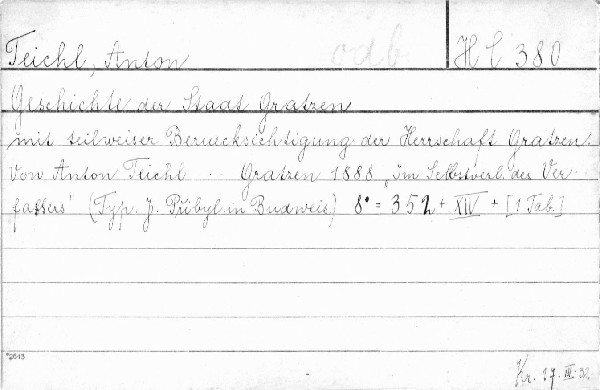 Teichl, Anton odb H C 380
Geschichte der Stadt Gratzen
mit teilweiser Beruecksichtigung der Herrschaft Gratzen.
Von Anton Teichl. Gratzen 1888 „im Selbstverl. der Ver-
fassers‘ (Typ. J. Přibyl in Budweis) 8° = 352 + XIV + [1 Tab.]
*2643
Kr. 17. III. 32.